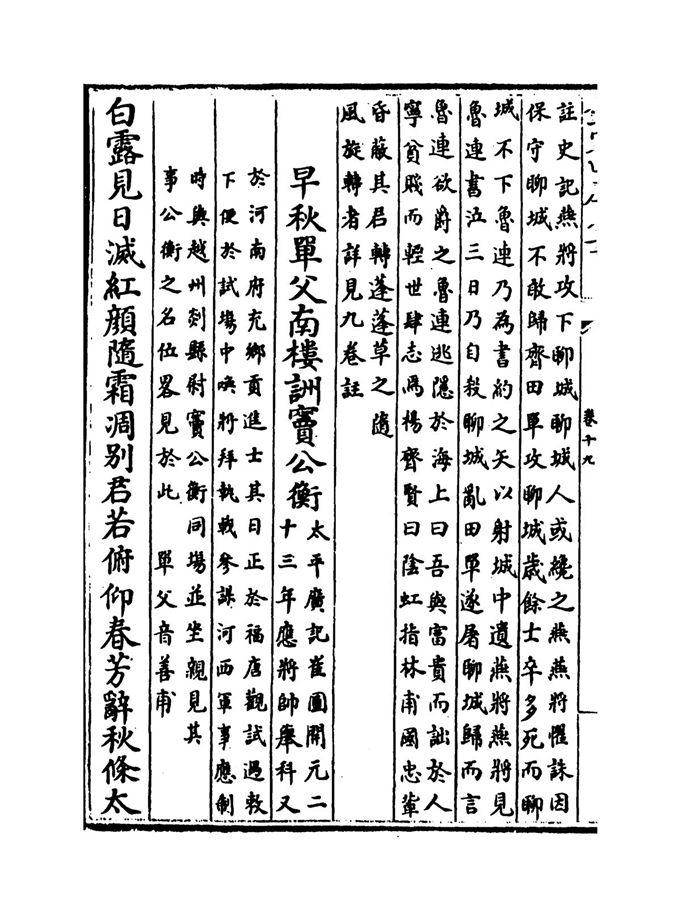 卷十九
註史記燕將攻下聊城聊城人或纔之燕燕將懼誅因
保守聊城不敢歸齊田單攻聊城歲餘士卒多死而聊
城不下魯連乃為書約之矢以射城中遺燕將燕將見
魯連書泣三日乃自殺聊城亂田單遂屠聊城歸而言
魯連欲爵之魯連逃隱於海上曰吾與富貴而詘於人
寧貧賤而輕世肆志焉楊齊賢曰陰虹指林甫國忠輩
昏蔽其君轉蓬蓬草之隨
風旋轉者詳見九卷註
早秋單父南樓詶竇公衡
太平廣記崔圓開元二
十三年應將帥舉科又
於河南府充鄉貢進士其日正於福唐觀試遇敕
下便於試場中喚將拜執戟參謀河西軍事應制
時與越州剡縣尉竇公衡同場並坐親見其
事公衡之名位畧見於此　單父音善甫
白露見日滅紅顔隨霜凋别君若俯仰春芳辭秋條太